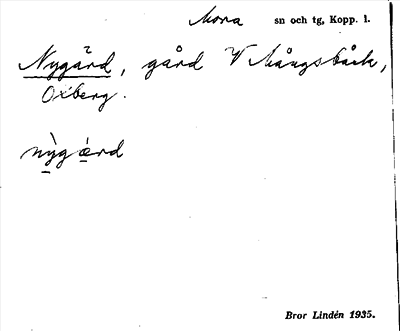 Mora sn och tg, Kopp. l.
Nygård, gård V Mångsbåck,
Oxberg.
nỳgård
Bror Lindén 1935.